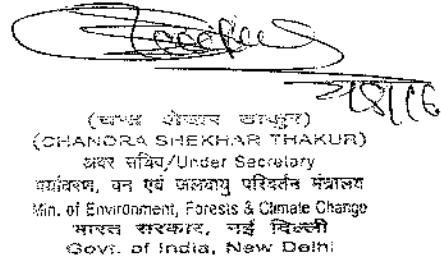 (चन्द्र शेखर ठाकुर)
(CHANDRA SHEKHAR THAKUR)
अवर सचिव/Under Secretary
पर्यावरण, वन एवं जलवायु परिवर्तन मंत्रालय
Min. of Environment, Forests & Climate Change
भारत सरकार, नई दिल्ली
Govt. of India, New Delhi